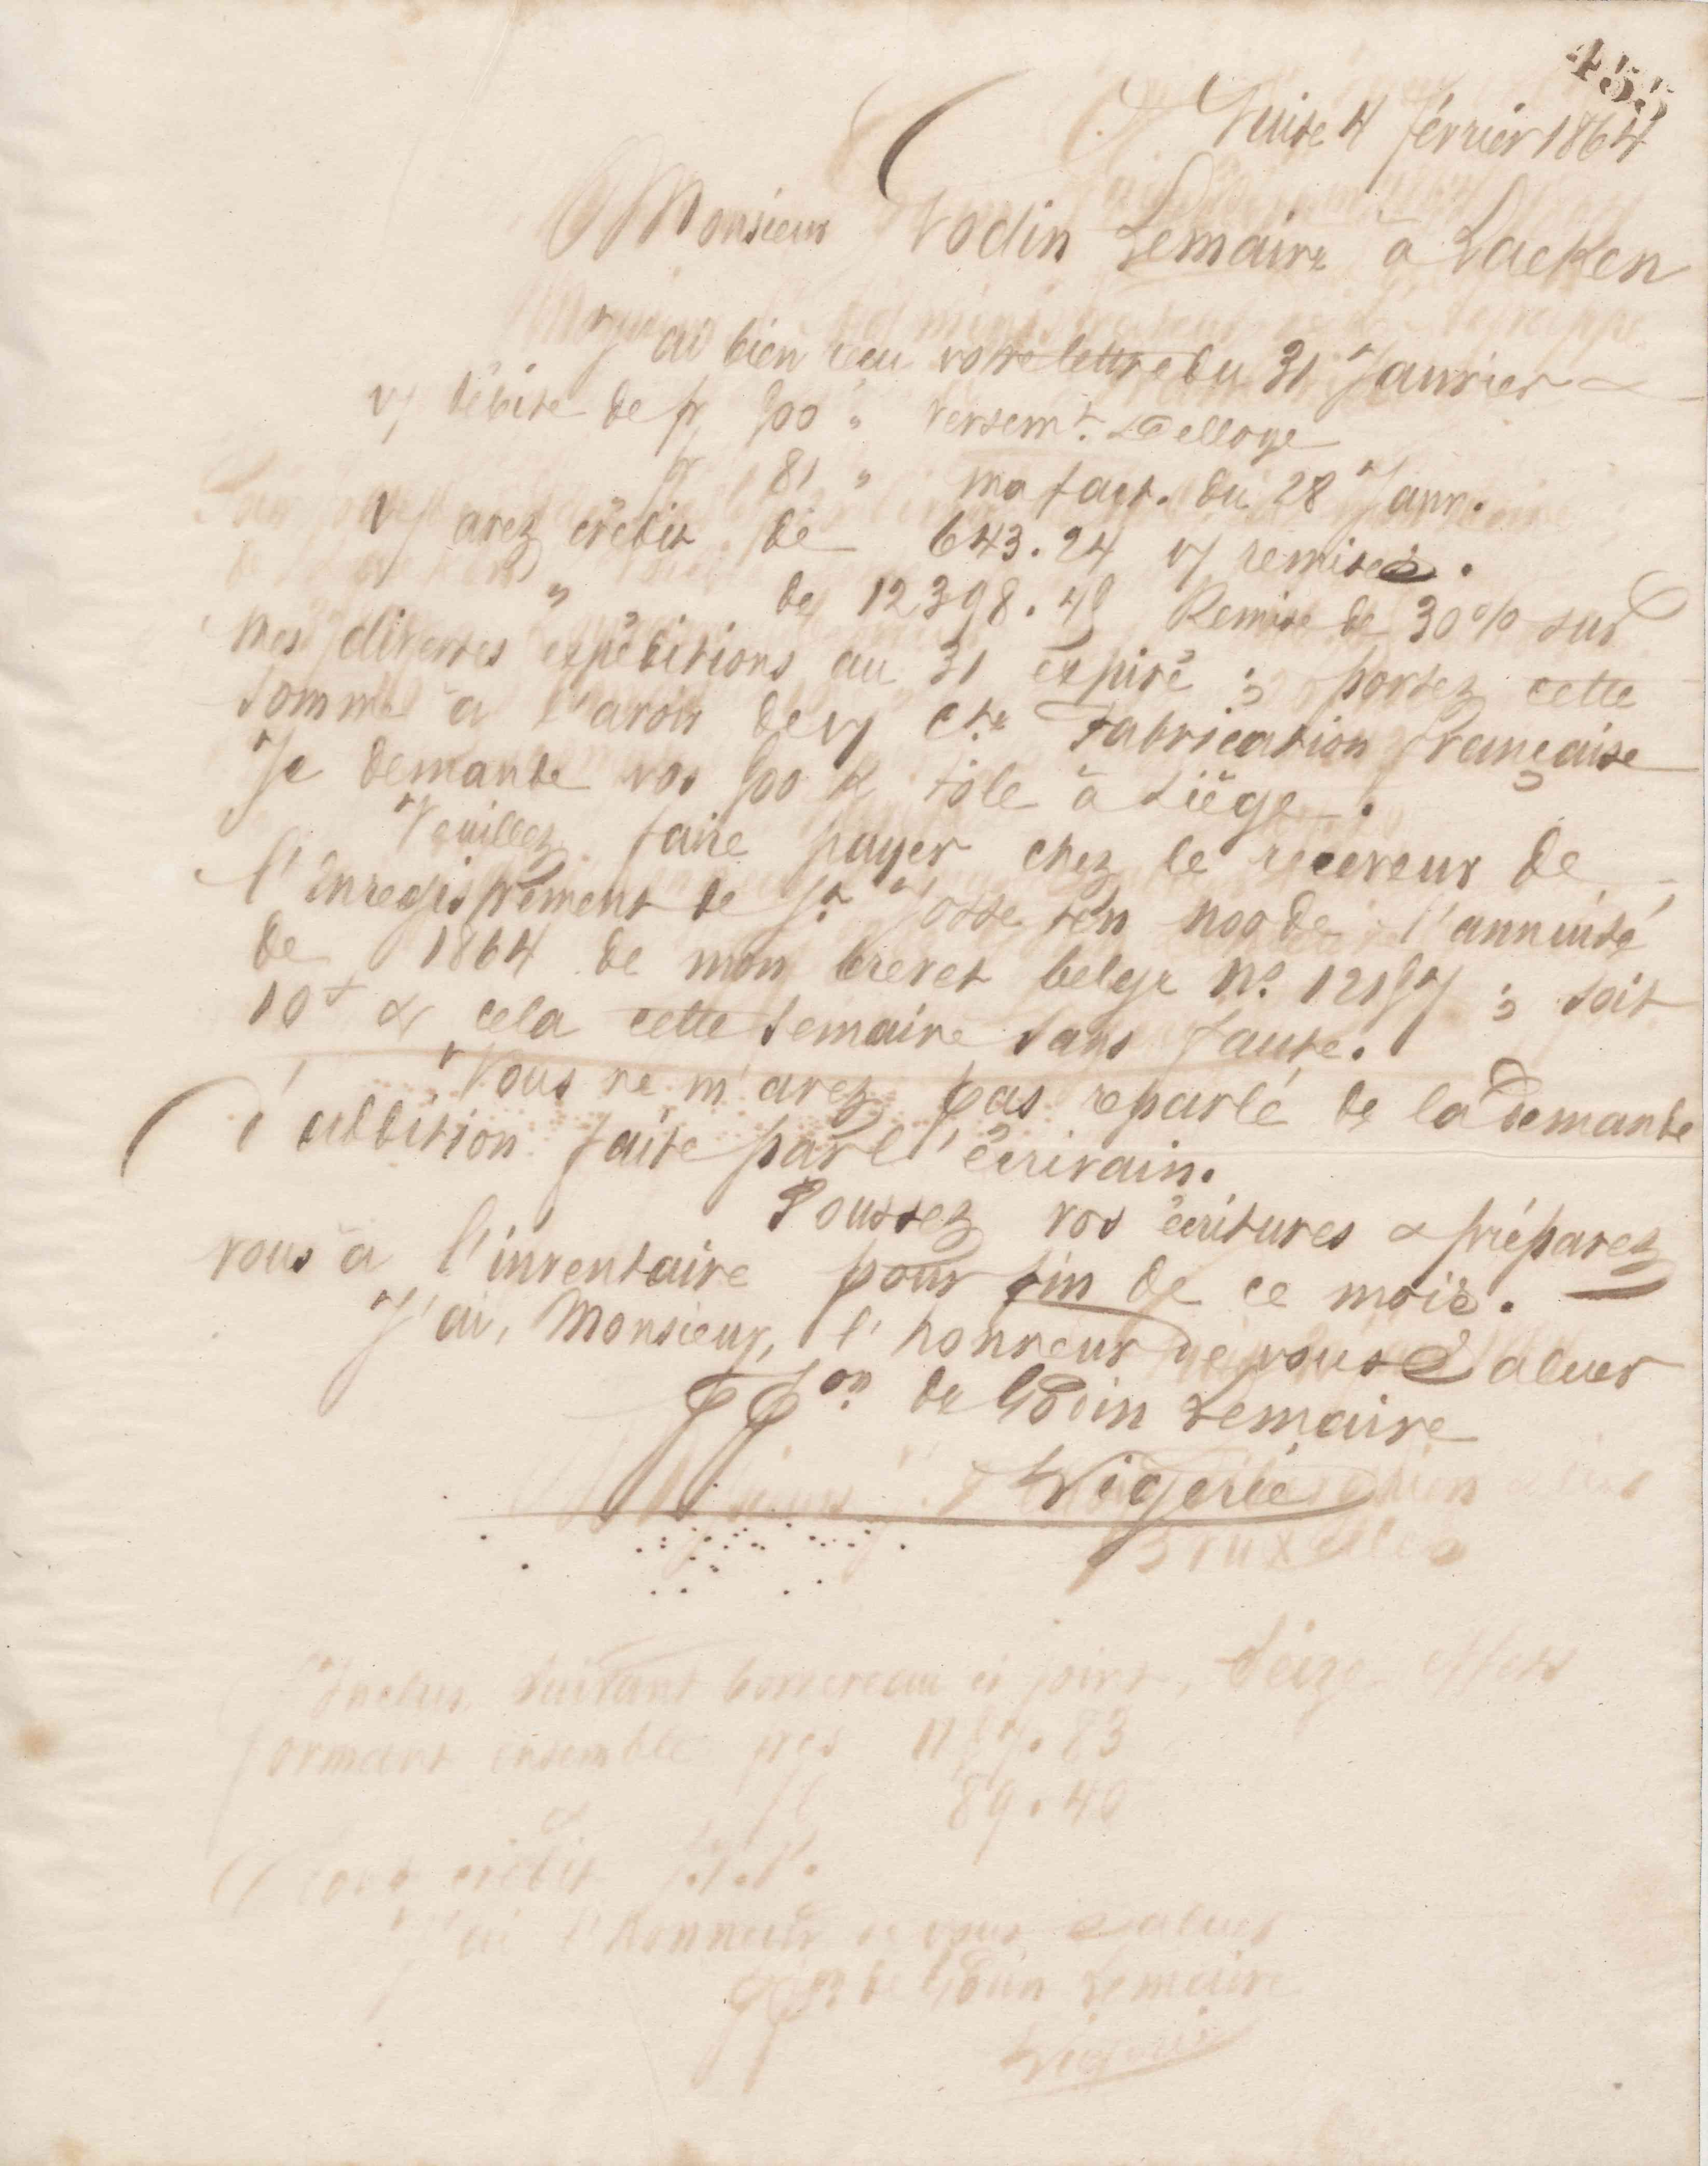 455
Guise 4 février 1864
Monsieur Godin Lemaire à Laeken
J'ai bien reçu votre lettre du 31 Janvier &
v/ débite de fr 500 " versemt. Delloye
fr 81 " ma fact. du 28 Janv.
V/ avez crédit de 643.24 v/ remises.
" de 12398.49 Remise de 30% sur
mes diverses expéditions au 31 expiré ; portez cette
somme à l'avoir de v/ cte fabrication française
Je demande vos 500 K tôle à Liège.
Veuillez faire payer chez le receveur de
l'Enregistrement de St Josse ten noode l'annuité
de 1864 de mon brevet belge No. ; soit
10f & cela cette semaine sans faute.
Vous ne m'avez pas reparlé de la demande
d'addition faite par l'écrivain.
Poussez vos écritures & préparez
vous à l'inventaire pour fin de ce mois.
J'ai, Monsieur, l'honneur de vous saluer
PPon de Godin Lemaire
Vigerie
Bruxelles
Inclus, suivant bordereau ci joint, seize effets
formant ensemble
89.40
crédit
J'ai l'honneur de vous saluer
PPon de Godin Lemaire
Vigerie